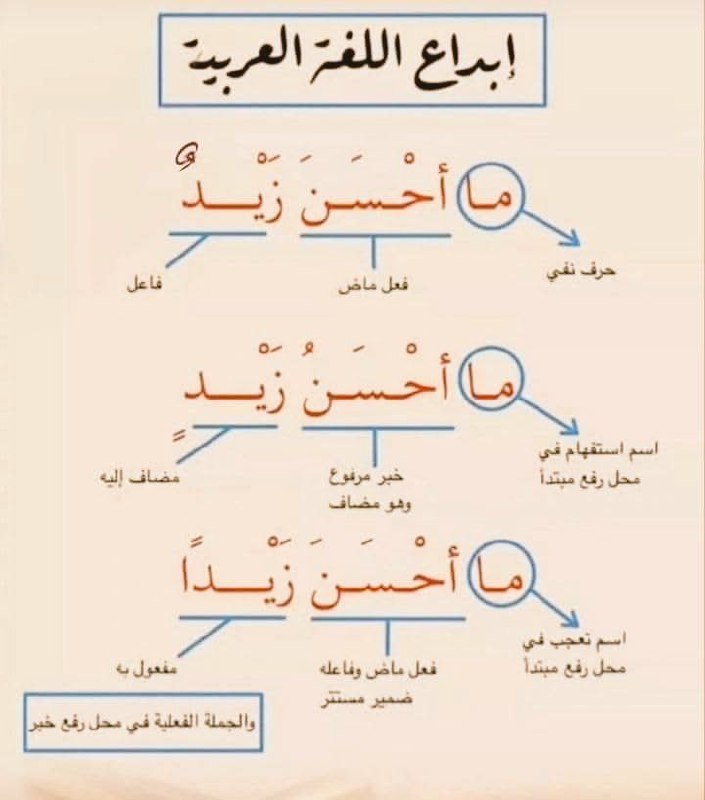 إبداع اللغة العربية
ما أحْسَنَ زَيْدٌ
حرف نفي
فعل ماض
فاعل
ما أحْسَنُ زَيْدٍ
اسم استفهام في
محل رفع مبتدأ
خبر مرفوع
وهو مضاف
مضاف إليه
ما أحْسَنَ زَيْداً
اسم تعجب في
محل رفع مبتدأ
فعل ماض وفاعله
ضمير مستتر
مفعول به
والجملة الفعلية في محل رفع خبر